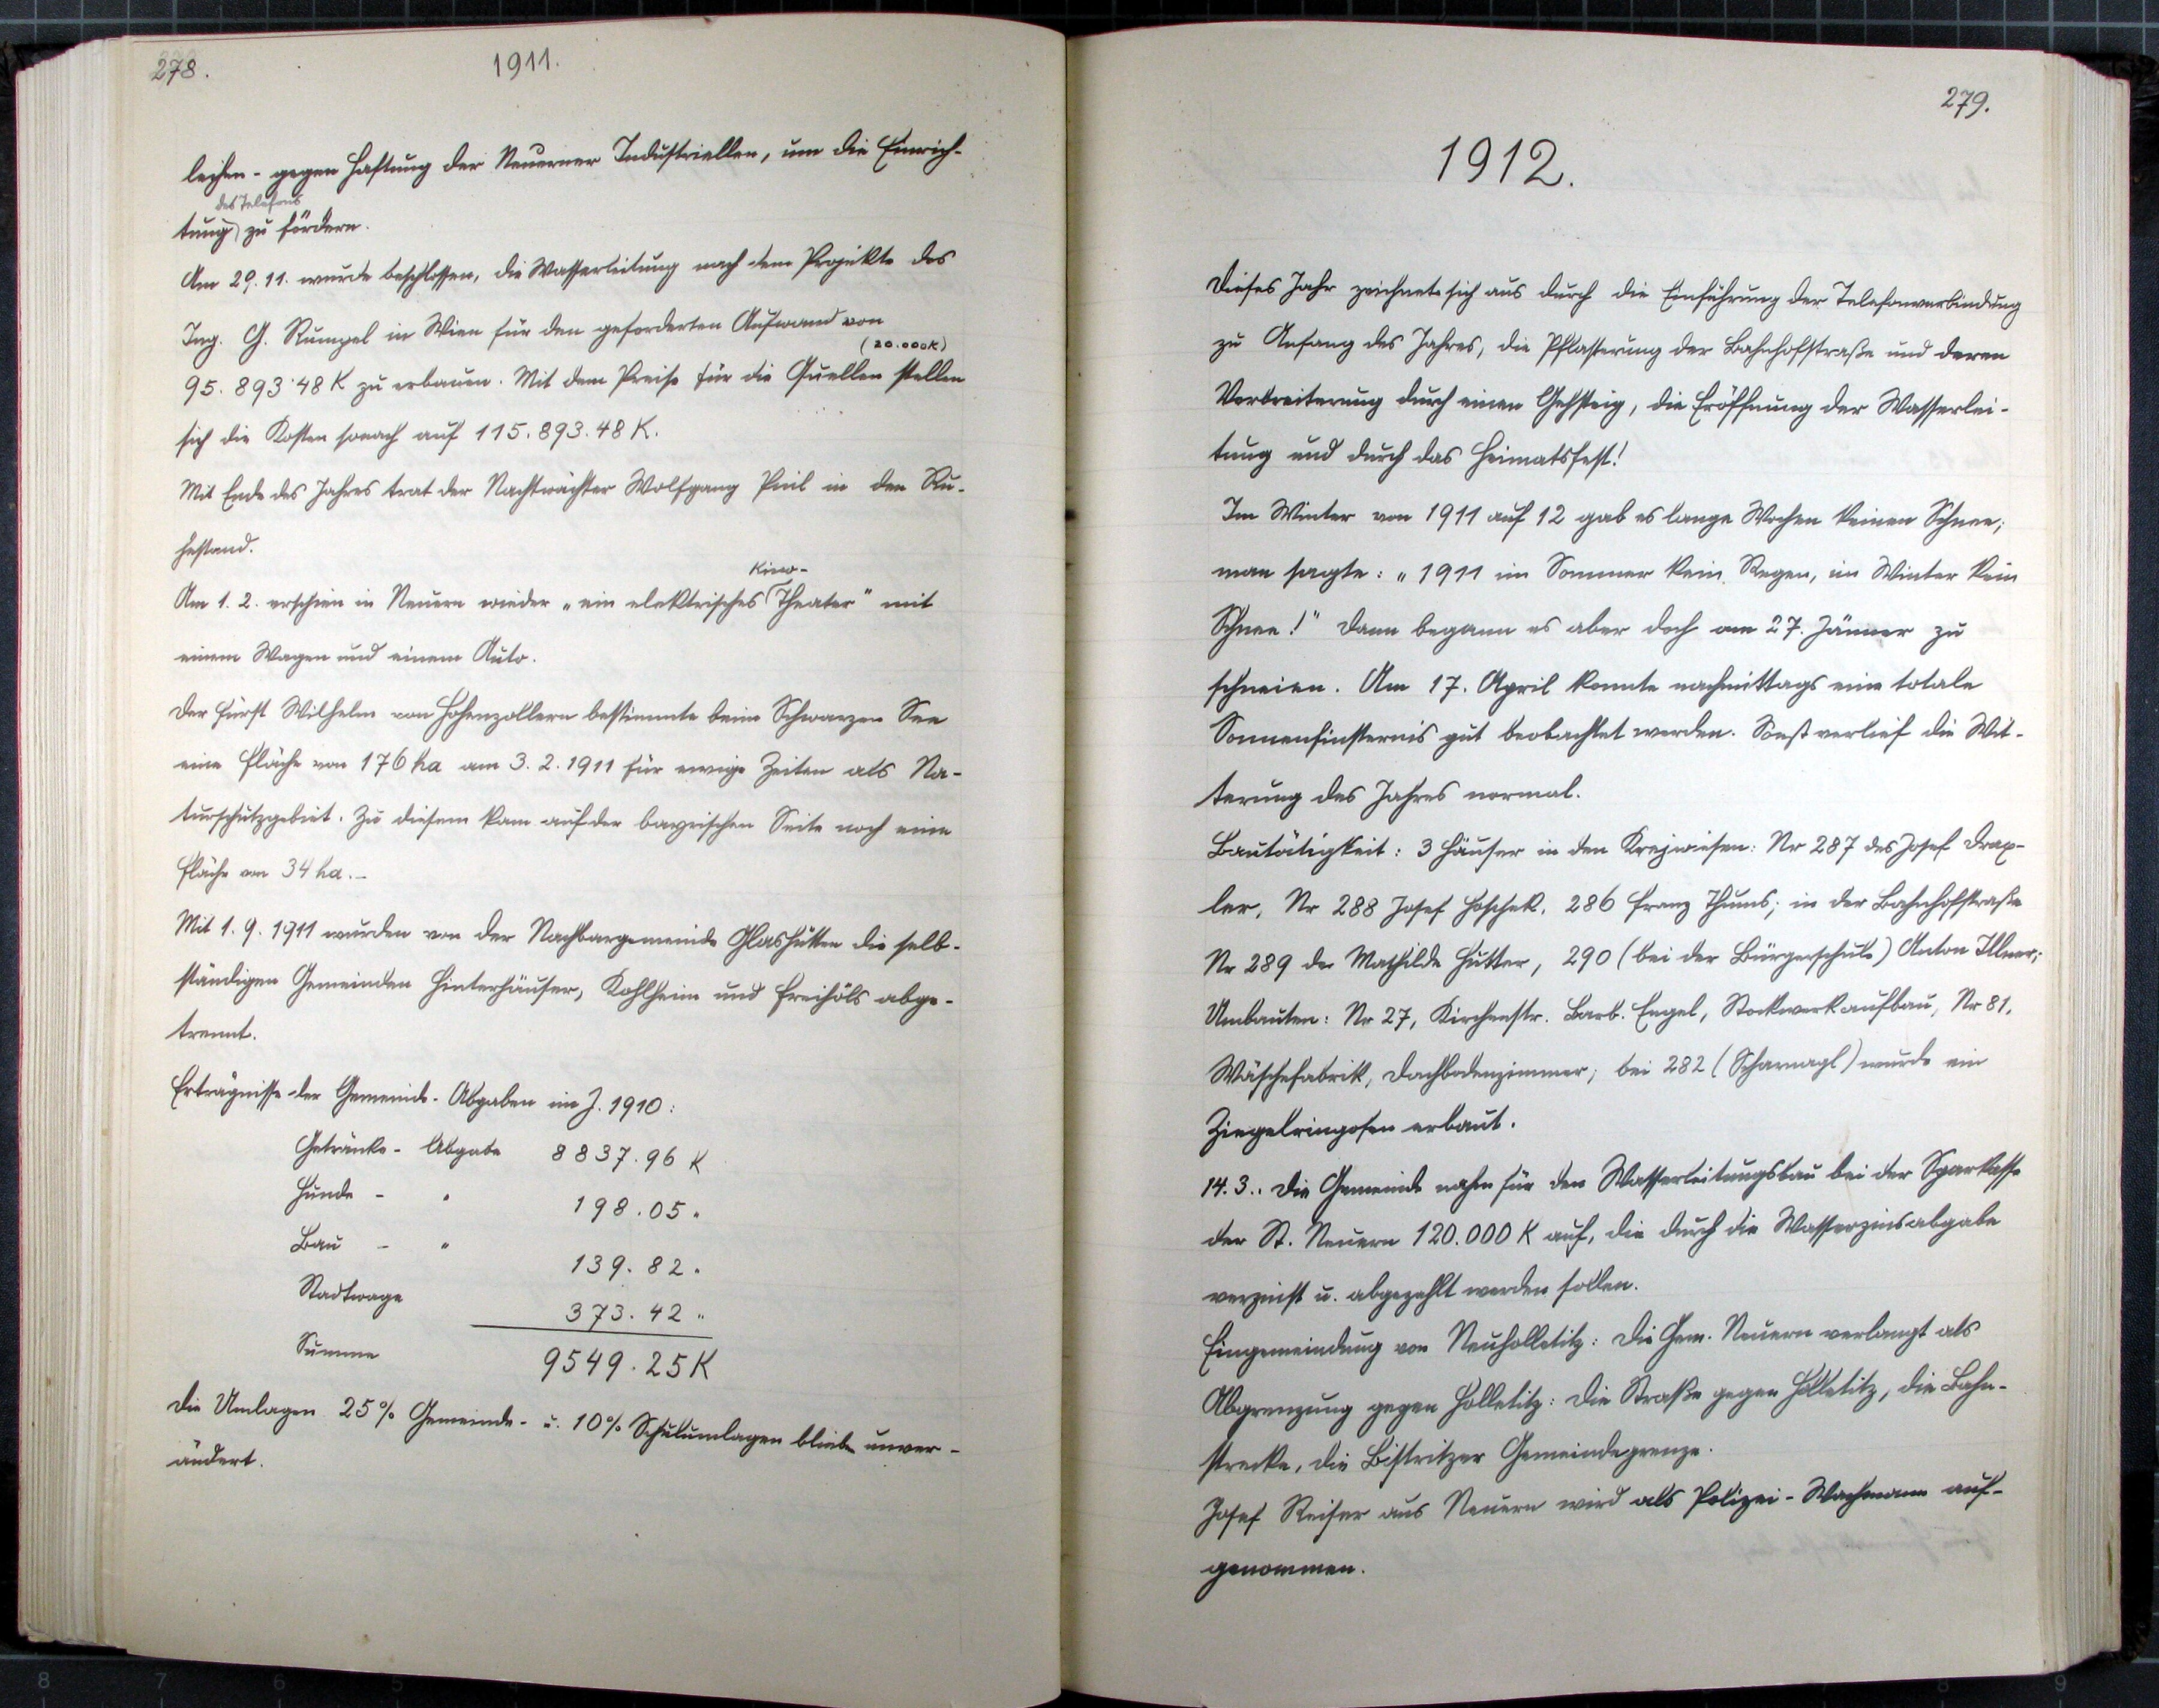 278.
1911.
leihen - gegen Haftung der Neuerner Industriellen, um die Einrich-
des Telefons
tung zu fördern.
Am 29.11. wurde beschlossen, die Wasserleitung nach dem Projekte des
Ing. G. Rumpel in Wien für den geforderten Aufwand von
(20.000K)
95.893·48 K zu erbauen. Mit dem Preise für die Quellen stellen
sich die Kosten sonach auf 115.893.48 K.
Mit Ende des Jahres trat der Nachtwächter Wolfgang Piril in den Ru-
hestand.
Kino-
Am 1.2. erschien in Neuern wieder „ein elektrisches Theater" mit
einem Wagen und einem Auto.
Der Fürst Wilhelm von Hohenzollern bestimmte beim Schwarzen See
eine Fläche von 176 ha am 3.2.1911 für ewige Zeiten als Na-
turschutzgebiet. Zu diesem kam auf der bayrischen Seite noch eine
Fläche von 34 ha.-
Mit 1.9.1911 wurden von der Nachbargemeinde Glashütten die selb-
ständigen Gemeinden Hinterhäuser, Kohlheim und Freihöls abge-
trennt.
Erträgnisse der Gemeinde-Abgaben im J. 1910:
Getränke- Abgabe 8837.96 K
Hunde - " 198.05 "
Bau - " 139.82 "
Stadtwage 373.42 "
Summe 9549.25 K
Die Umlagen 25% Gemeinde- u. 10% Schulumlagen blieben unver-
ändert.
279.
1912.
Dieses Jahr zeichnete sich aus durch die Einführung der Telefonverbindung
zu Anfang des Jahres, die Pflasterung der Bahnhofstraße und deren
Verbreiterung durch einen Gehsteig, die Eröffnung der Wasserlei-
tung und durch das Heimatsfest!
Im Winter von 1911 auf 12 gab es lange Wochen keinen Schnee;
man sagte: „1911 im Sommer kein Regen, im Winter kein
Schnee!" Dann begann es aber doch am 27. Jänner zu
schneien. Am 17. April konnte nachmittags eine totale
Sonnenfinsternis gut beobachtet werden. Sonst verlief die Wit-
terung des Jahres normal.
Bautätigkeit: 3 Häuser in den Krejwiesen: Nr 287 des Josef Drax-
ler, Nr 288 Josef Hoschek, 286 Franz Thums; in der Bahnhofstraße
Nr 289 der Mathilde Hutter, 290 (bei der Bürgerschule) Anton Illner;
Umbauten: Nr 27, Kirchenstr. Barb. Engel, Stockwerkaufbau, Nr 81,
Wäschefabrik, Dachbodenzimmer; bei 282 (Scharnagl) wurde ein
Ziegelringofen erbaut.
14.3.: Die Gemeinde nahm für den Wasserleitungsbau bei der Sparkasse
der St. Neuern 120.000 K auf, die durch die Wasserzinsabgabe
verzinst u. abgezahlt werden sollen.
Eingemeindung von Neuholletitz: Die Gem. Neuern verlangt als
Abgrenzung gegen Holletitz: Die Straße gegen Holletitz, die Bahn-
strecke, die Bistritzer Gemeindegrenze.
Josef Reiser aus Neuern wird als Polizei-Wachmann auf-
genommen.